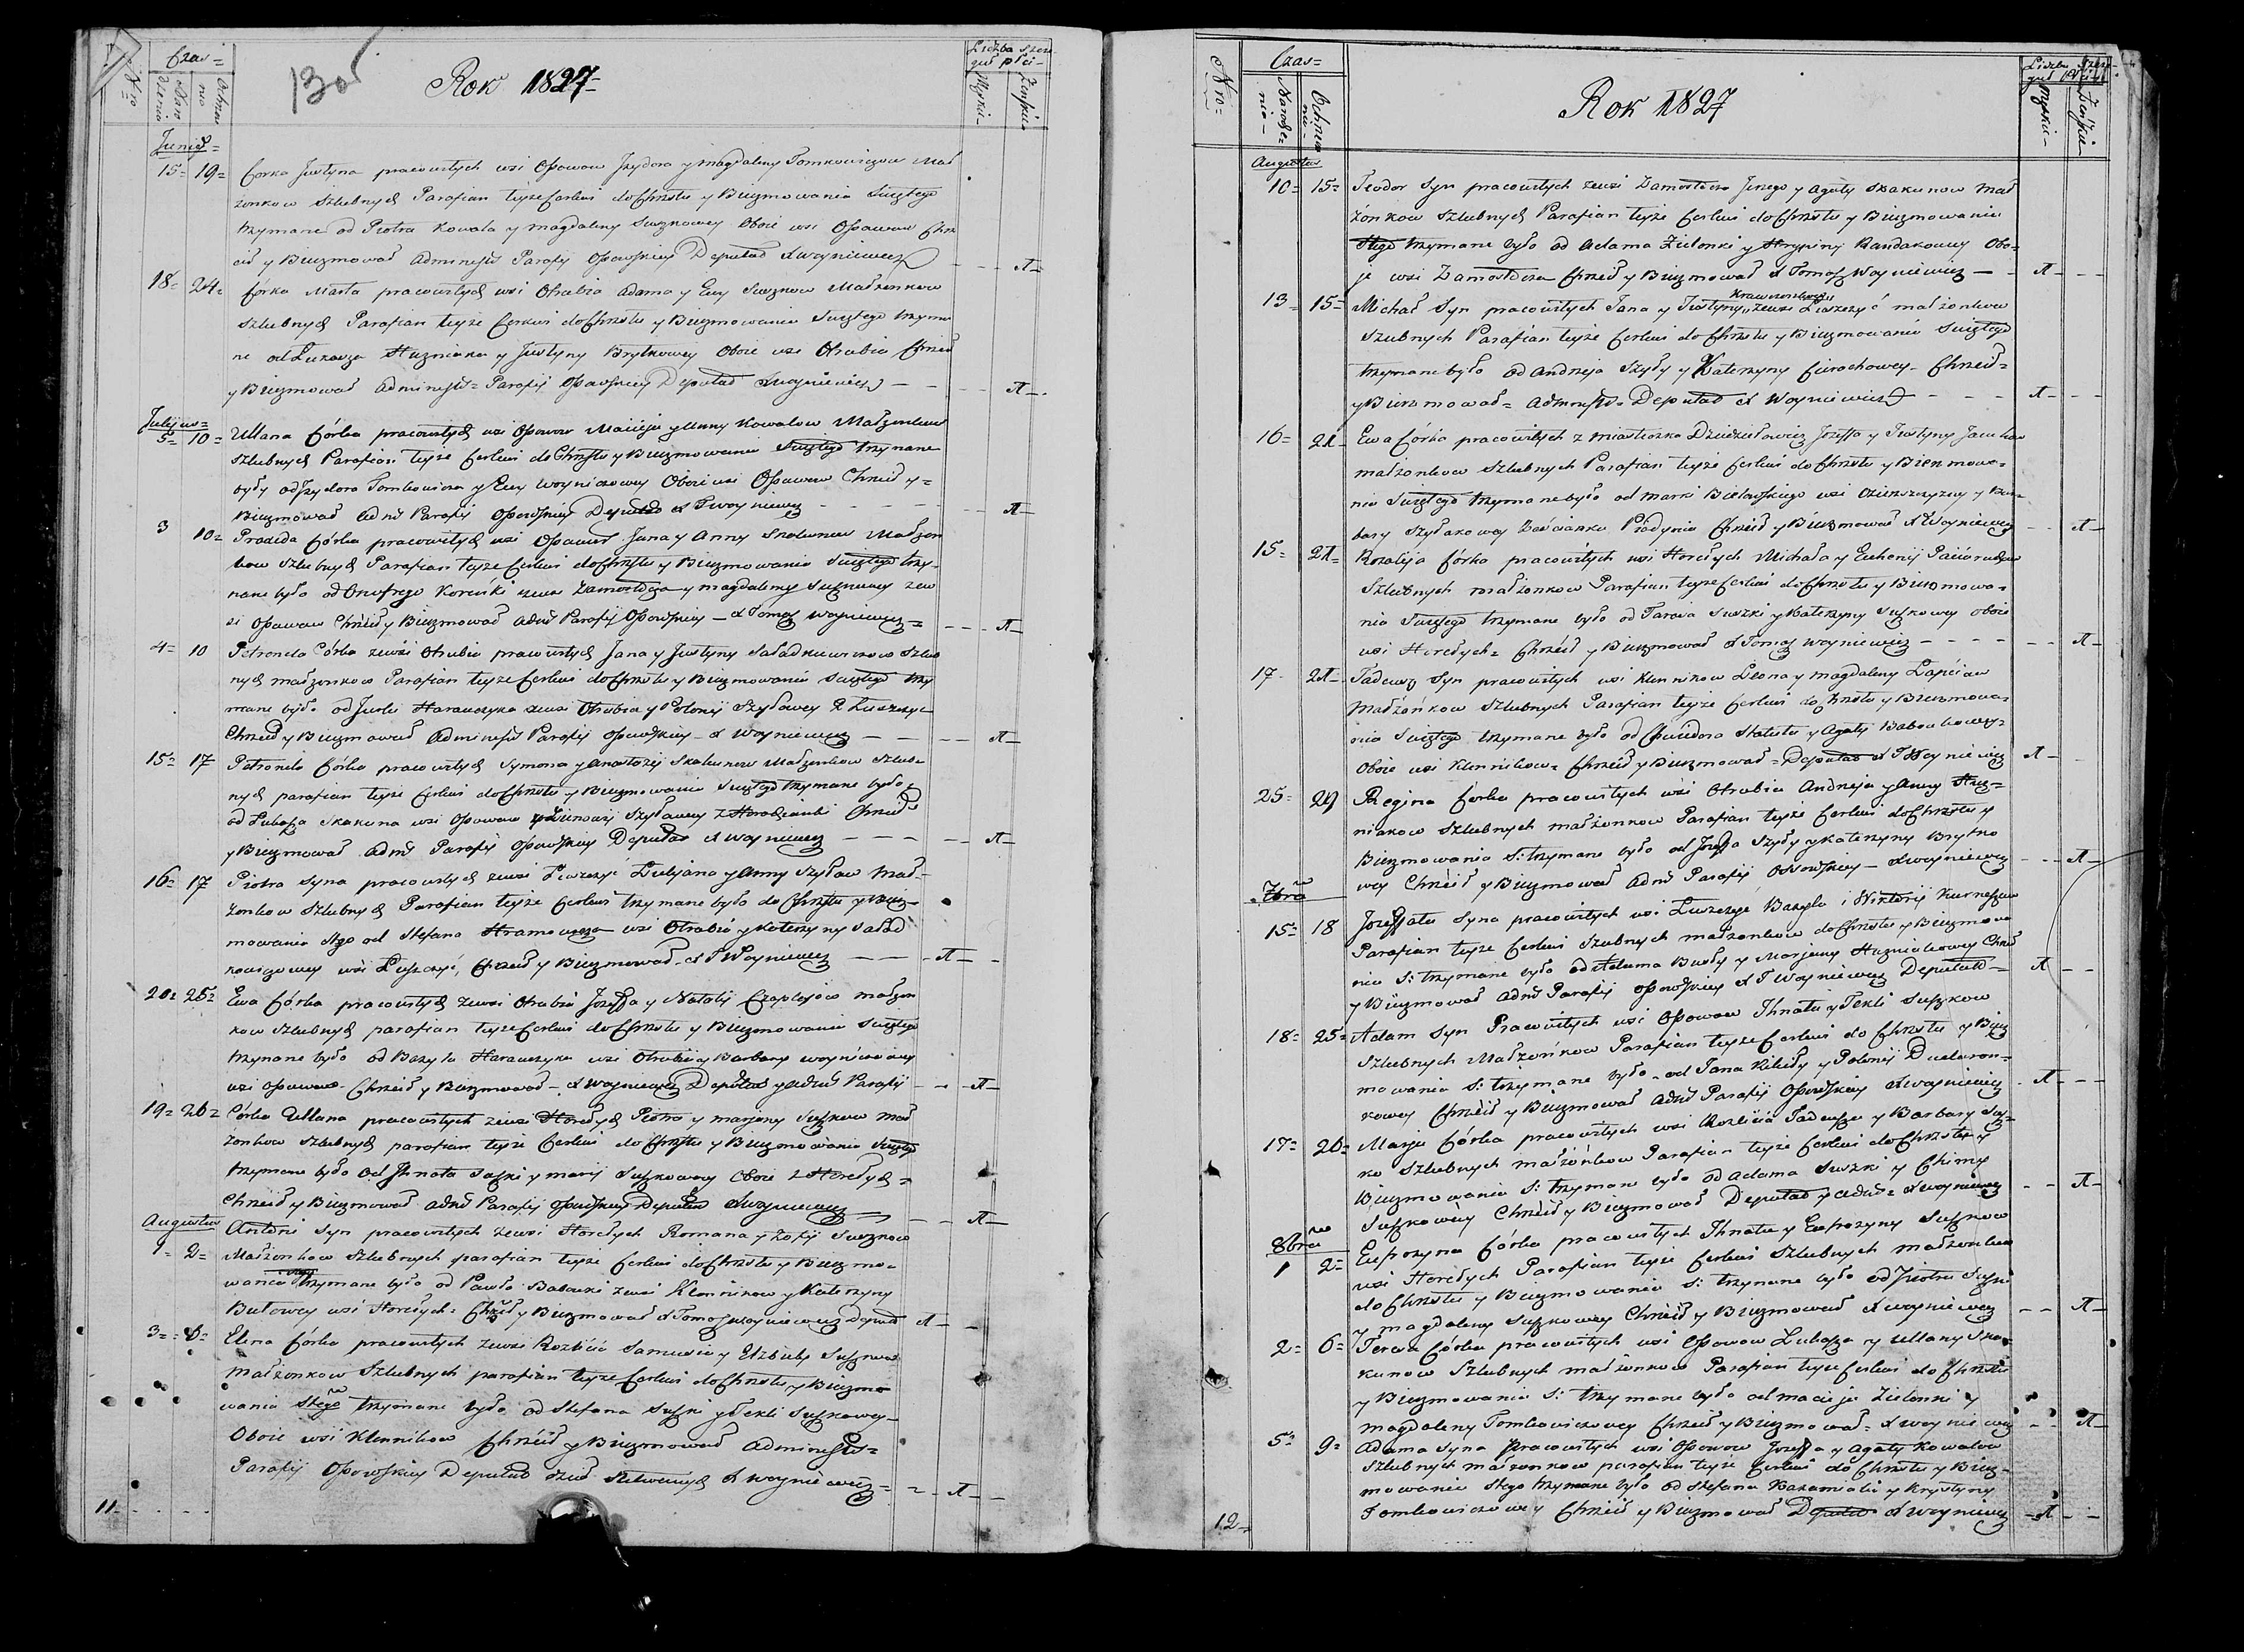 Czas=
Nro=
Narodzenia
Ochrzcenia
130
Rok 1827=
Liczba szczeguł płci-
Męzkie-
Żeńskie
Junij=
15= 19= Corka Justyna pracowitych wsi Opowow Jzydora y Magdaleny Tomkowiczow Mał
żonkow Szlubnych Parafian teyże Cerkwi do Chrzstu y Biezmowania Swiętego
trzymane od Piotra Kowala y Magdaleny Suszkowey Oboie wsi Opowow Chrz
cił y Biezmował Administr Parafij Opowskiey Deputat X Woyniewicz A-
18= 24= Corka Marta pracowitych wsi Otrubia Adama y Ewy Suszkow Małżonkow
Szlubnych Parafian teyże Cerkwi do Chrzstu y Biezmowania Swiętego trzyma
ne od Łukasza Huzniaka y Justyny Brytkowey Oboie wsi Otrubia Chrzcił
y Biezmował Administr= Parafij Opowskiey Deputat X Woyniewicz - A-
Julijus=
5= 10= Ullana Córka pracowitych wsi Opowow Macieja y Anny Kowalow Małżonkow
Szlubnych Parafian teyże Cerkwi do Chrzstu y Biezmowania Swiętego trzymane
były od Jzydora Tomkowicza y Ewy Woyniczowey Oboie wsi Opowow Chrzcił y=
Biezmował Adm Parafij Opowskiey Deputat X T Woyniewicz - A-
3 10= Praxeda Córka pracowitych wsi Opowow Jana y Anny Skakunow Małżon
kow Szlubnych Parafian teyże Cerkwi do Chrzstu y Biezmowania Swiętego trzy-
mane było od Onufrego Korenki zewsi Zamostocza y Magdaleny Suszkowey zew
si Opowow Chrzcił y Biezmował Adm Parafij Opowskiey - X Tomasz Woyniewicz= A-
4= 10 Petronela Córka zewsi Otrubia pracowitych Jana y Justyny Saładkiewiczow Szlub
nych małżonkow Parafian teyże Cerkwi do Chrzstu y Biezmowania Swiętego trzy
mane było od Jurki Harawczyka zewsi Otrubia y Polonij Szyłowey z Luszczyc
Chrzcił y Biezmował Administr Parafij Opowskiey - X Woyniewicz - A-
15= 17 Petronela Córka pracowitych Symona y Anastazij Skakunow Małżonkow Szlub-
nych parafian teyże Cerkwi do Chrzstu y Biezmowania Swiętego trzymane było
od Łukasza Skakuna wsi Opowow y Szyłowey z Chrzcił
y Biezmował Adm Parafij Opowskiey Deputat X Woyniewicz - A-
16= 17 Piotra Syna pracowitych zewsi Luszczyc Lulijana y Anny Szyłow Mał-
żonkow Szlubnych Parafian teyże Cerkwi trzymane było do Chrzstu y Biez-
mowania Stgo od Stefana wsi Otrubia y Kateryny Saład
kowiczowey wsi Luszczyc, Chrzcił y Biezmował X T Woyniewicz - A-
20= 25= Ewa Córka pracowitych zewsi Otrubia Jozeffa y Natalij Czaplejow małżon
kow Szlubnych parafian teyże Cerkwi do Chrzstu y Biezmowania Swiętego
trzymane było od Bazyla Harawczyka wsi Otrubia y Barbary Woyniczowey
wsi Opowow Chrzcił y Biezmował - X Woyniewicz Deputat y Adm Parafij - A-
19= 26= Córka Ullana pracowitych zewsi Horełych Piotra y Marjany Suszkow Mał
żonkow Szlubnych parafian teyże Cerkwi do Chrzstu y Biezmowania Swiętego
trzymane było od Jhnata Suszki y Marij Suszkowey Oboie z Horełych=
Chrzcił y Biezmował Adm Parafij Opowskiey Deputat X Woyniewicz - A-
Augustus
1= 2= Antoni Syn pracowitych zewsi Horełych Romana y Zofij Suszkow
Małżonkow Szlubnych parafian teyże Cerkwi do Chrzstu y Biezmo-
wania Stgo trzymane było od Pawła Babouki zewsi Klennikow y Kateryny
Butowey wsi Horełych= Chrzcił y Biezmował X Tomasz Woyniewicz Deputat A-
3= 6= Elena Córka pracowitych zewsi Rozlicia Samuela y Elzbiety Suszkow
Małżonkow Szlubnych parafian teyże Cerkwi do Chrzstu y Biezmo
wania Stego trzymane było od Stefana Suszki y Tekli Suszkowey-
Oboie wsi Klennikow Chrzcił y Biezmował Administr=
Parafij Opowskiey Deputat X Woyniewicz= - A-
11-
Nro=
Czas=
Narodzenia-
Ochrzcenia-
Rok 1827
Liczba Szczeguł płci
męzkie-
Żeńskie-
Augustus
10= 15= Teodor Syn pracowitych zewsi Zamostocza Jerzego y Agaty Skakunow Mał
żonkow Szlubnych Parafian teyże Cerkwi do Chrzstu y Biezmowania
Stego trzymane było od Adama Zielonki y Kandakowey Obo-
je wsi Zamostocza Chrzcił y Biezmował X Tomasz Woyniewicz - A-
13= 15= Michał Syn pracowitych Jana y Justyny Krawczonkow zewsi Luszczyc małżonkow
Szlubnych Parafian teyże Cerkwi do Chrzstu y Biezmowania Swiętego
trzymane było od Andrzeja Szyły y Kateryny Cierochowey- Chrzcił=
y Biezmował= Administr Deputat X Woyniewicz - A-
16= 21- Ewa Córka pracowitych z miasteczka Dziedziełowicz Jozeffa y Justyny
małżonkow Szlubnych Parafian teyże Cerkwi do Chrzstu y Biezmowa-
nia Swiętego trzymane było od Marki Bielawskiego wsi y Bar-
bary Szyłakowey Chrzcił y Biezmował X Woyniewicz - A-
15= 21= Rozalija Córka pracowitych wsi Horełych Michała y Euhenij
Szlubnych małżonkow Parafian teyże Cerkwi do Chrzstu y Biezmowa-
nia Swiętego trzymane było od Tarasa Suszki y Kateryny Suszkowey oboie
wsi Horełych= Chrzcił y Biezmował X Tomasz Woyniewicz - A-
17- 21- Tadeusz Syn pracowitych wsi Klennikow Leona y Magdaleny Łapciow
Małżonkow Szlubnych Parafian teyże Cerkwi do Chrzstu y Biezmowa-
nia Swiętego trzymane było od y Agaty Baboukowey-
Oboie wsi Klennikow= Chrzcił y Biezmował= Deputat X T Woyniewicz A-
25= 29 Regina Corka pracowitych wsi Otrubia Andrzeja y Anny Huz=
niakow Szlubnych małżonkow Parafian teyże Cerkwi do Chrzstu y
Biezmowania S: trzymane było od Jozeffa Szyły y Kateryny Brytko
wey Chrzcił y Biezmował Adm Parafij Opowskiey - X Woyniewicz - A-
7bra
15= 18 Jozeffata Syna pracowitych wsi Luszczyc Bazyla i Wiktorij
Parafian teyże Cerkwi Szlubnych małżonkow do Chrzstu y Biezmowa
nia S: trzymane było od Adama Busły y Marjany Huzniakowey Chrzcił
y Biezmował Adm Parafij Opowskiey X T Woyniewicz Deputat - A
18= 25= Adam Syn Pracowitych wsi Opowow Jhnata y Tekli Suszkow
Szlubnych Małżonkow Parafian teyże Cerkwi do Chrzstu y Biez
mowania S: trzymane było od Jana y Polonij
kowey Chrzcił y Biezmował Adm Parafij Opowskiey X Woyniewicz - A-
17= 26= Marja Córka pracowitych wsi Rozlicia Tadeusza y Barbary Susz-
ko Szlubnych małżonkow Parafian teyże Cerkwi do Chrzstu y
Biezmowania S: trzymane było od Adama Suszki y Chimy
Suszkowey Chrzcił y Biezmował Deputat y Adm= X Woyniewicz - A-
8bra
1 2= Euprozyna Córka pracowitych Jhnata y Euprozyny Suszkow
wsi Horełych Parafian teyże Cerkwi Szlubnych małżonkow
do Chrzstu y Biezmowania S: trzymane było od Piotra Suszki
y Magdaleny Suszkowey Chrzcił y Biezmował X Woyniewicz - A-
2= 6= Teresa Córka pracowitych wsi Opowow Łukasza y Ullany Ska-
kunow Szlubnych małżonkow Parafian teyże Cerkwi do Chrzstu
y Biezmowania S: trzymane było od Macieja Zielonki y
Magdaleny Tomkowiczowey Chrzcił y Biezmował= X Woyniewicz - A-
5= 9= Adama Syna pracowitych wsi Opowow Jozeffa y Agaty Kowalow
Szlubnych małżonkow parafian teyże Cerkwi do Chrzstu y Biez-
mowania Stego trzymane było od Stefana y Krystyny
Tomkowiczowey Chrzcił y Biezmował Deputat X Woyniewicz - A-
12-